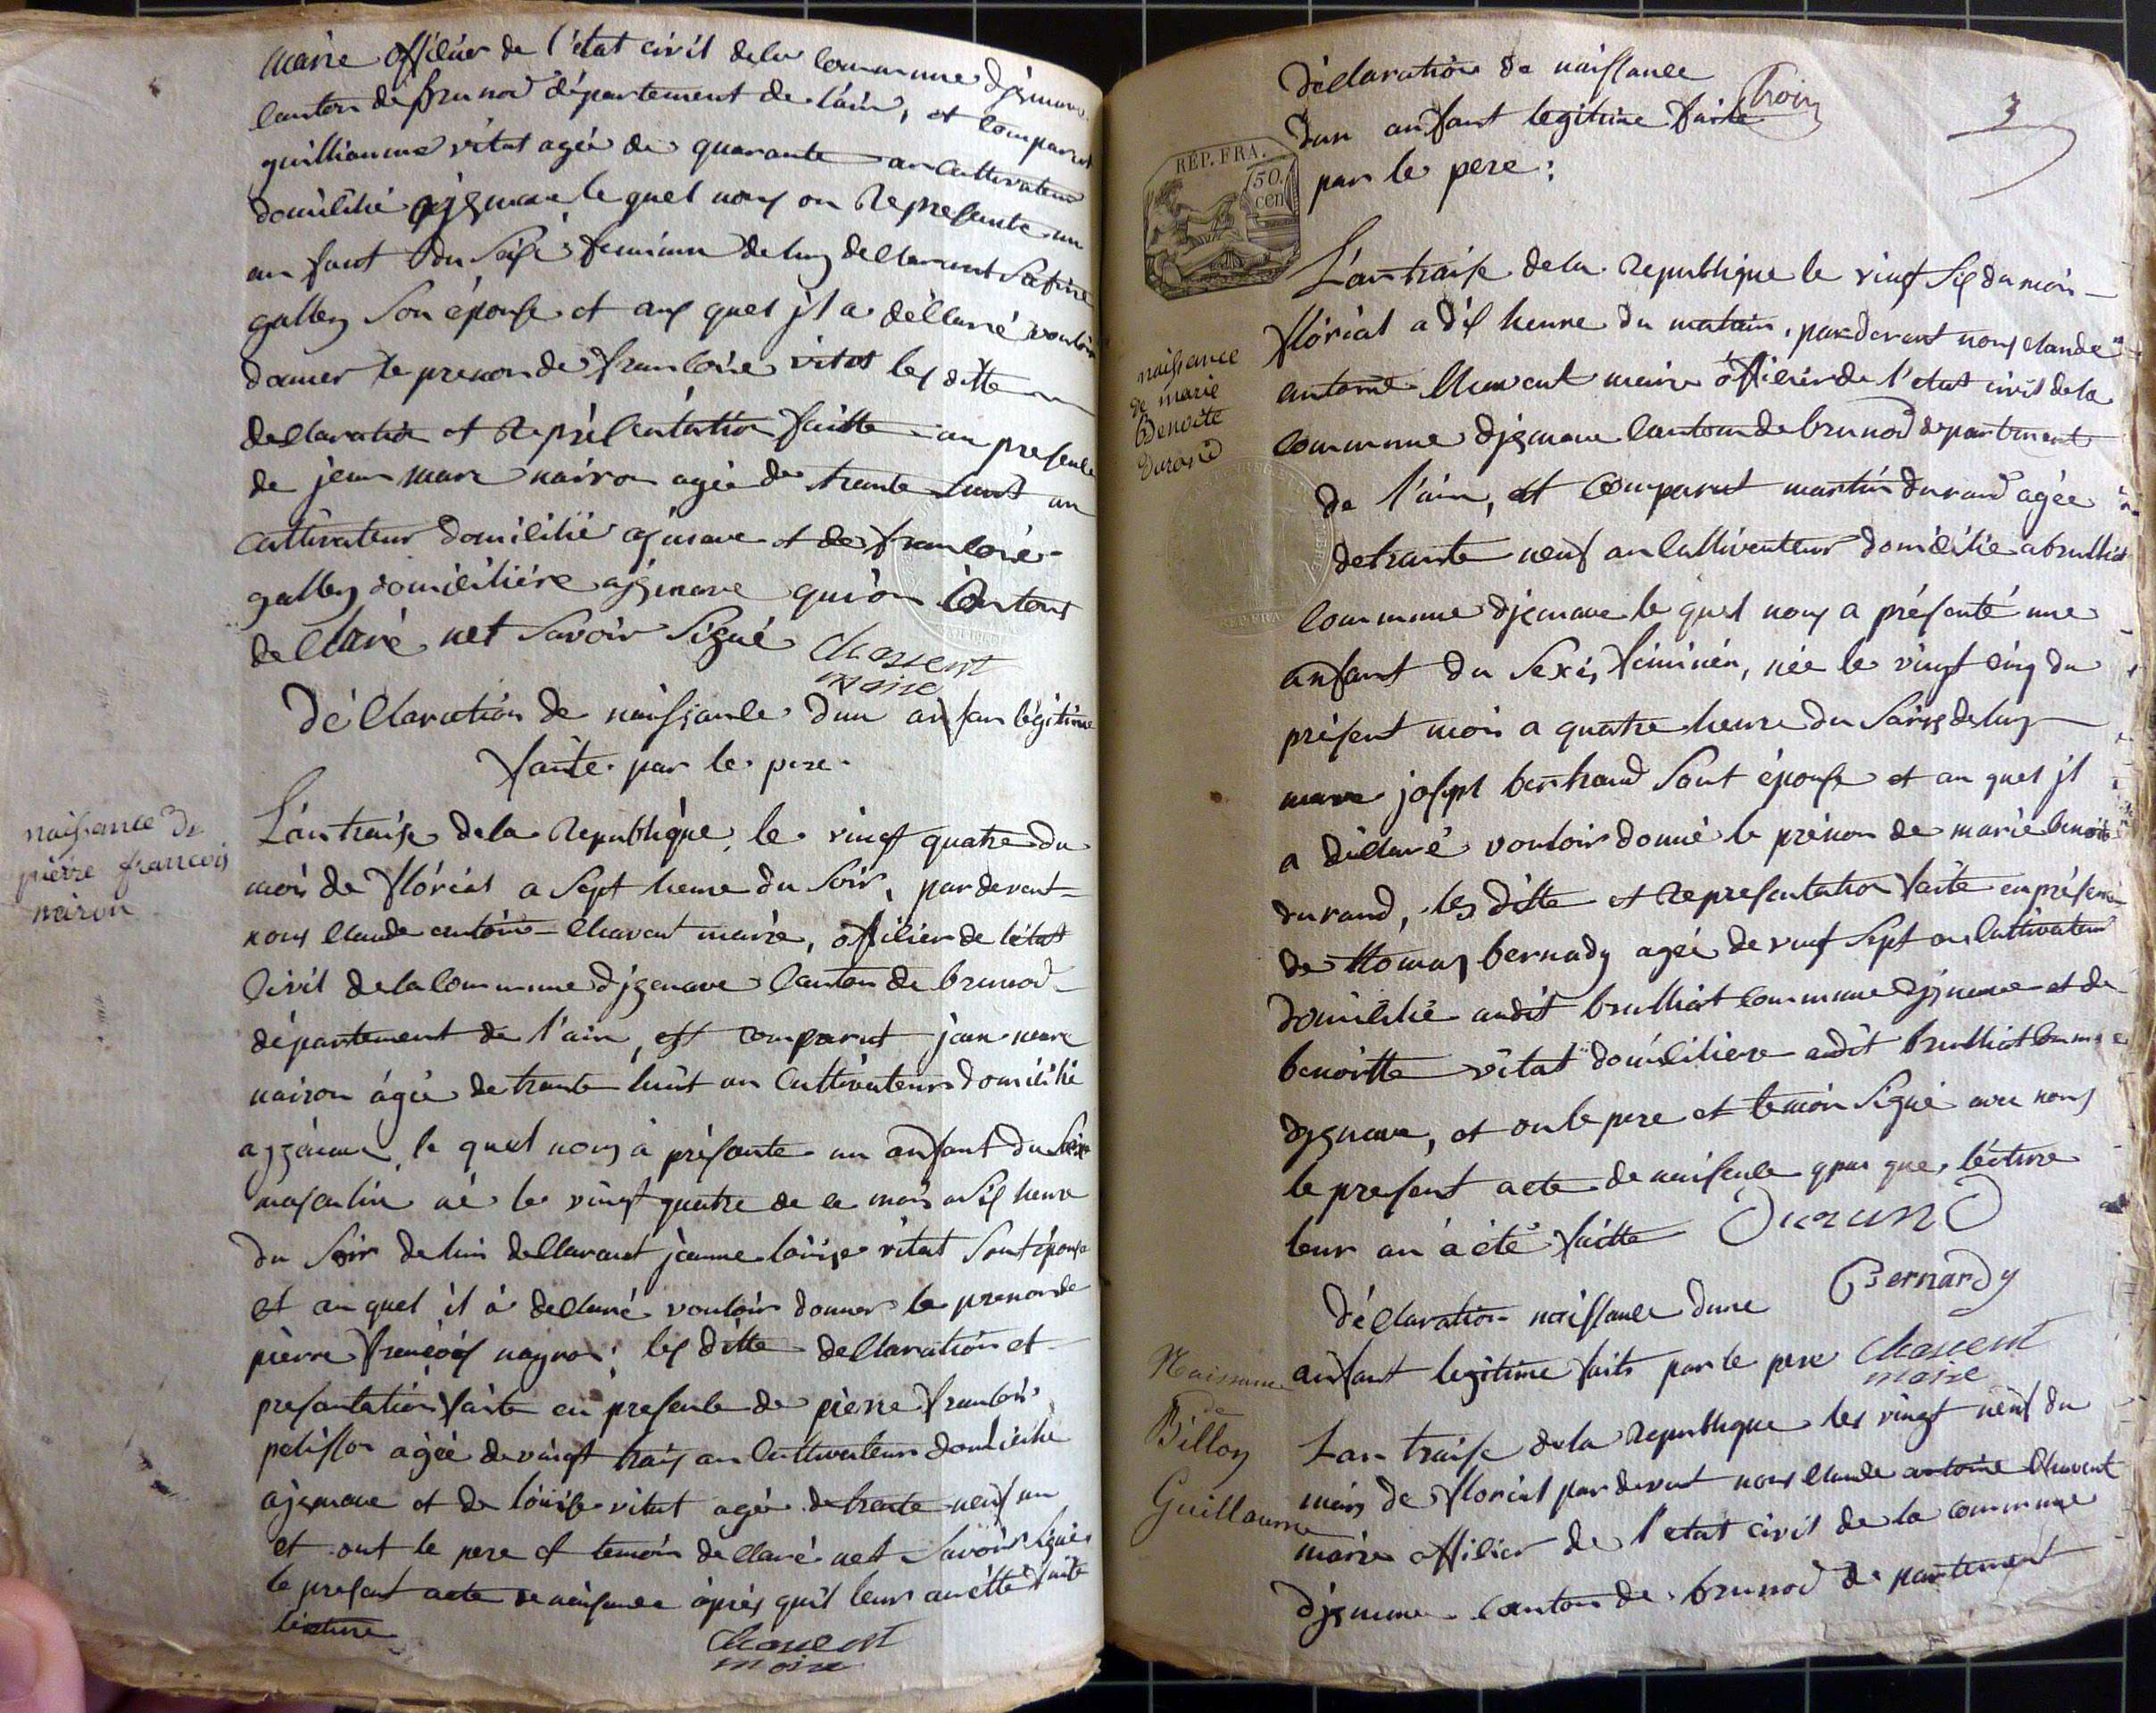 maire officier de l'état civil dela commune djgnave
canton de brunod département de l'ain, et comparut
guilliaume vitat agée de quarante an cultivateur
domicilié ajgnave le quel nous on Representé un
anfant du sexe feminin de luy declarant
galley son épouse et auquel jl a déclaré vouloir
donner le prenon de francoise vitat les ditte
declaration et Représentation faitte an presence
de jean marc nairon agée de trante huit an
cultivateur domicilié ajnave et de francoise
galley domicilière ajgnave qui on
declaré net savoir signé
Chavent
maire
déclaration de naissance dun anfan légitime
faite par le pere
naissance de
pierre francois
nairon
L'an traise dela Republique, le vingt quatre du
mois de floréal a sept heure du soir, pardevant
nous claude antoine chavent maire, officier de l'état
civil dela commune djgnave canton de brunod
département de l'ain, est comparut jean marc
nairon agée de trante huit an cultivateur domicilié
ajgnave, le quel nous à présanté un anfant du sexe
masculin né le vingt quatre de ce mois a six heure
du soir de lui declarant jeanne loüise vitat sont épouse
et auquel il à declaré vouloir donner le prenon de
pierre francois nayron; les ditte declaration et
presantation faite en presence de pierre francois
pelisson agée de vingt trais an cultivateur domicilié
ajgnave et de loüise vitat agée de trante neuf an
et ont le pere et temoin declaré net savoir signer
le present acte de naissance après qu'il leur an étté faite
lecture
Chavent
maire
déclaration de naissance
dun anfant legitime faite
par le pere:
3
RÉP. FRA.
50
cen
naissance
de marie
Benoite
durand
L'an traise dela Republique le vingt six du mois
floréal a dix heure du matain, par devant nous claude
antoine chavent maire officier de l'etat civil dela
commune djgnave canton de brunod département
de l'ain, et comparut martin durand agée
de trante neuf an cultivateur domicilié a brulliat
commune djgnave le quel nous a présanté une
anfant du sexe féminin, née le vingt cinq du
présent mois a quatre heure du soire de luy
marie josept bertrand sont épouse et au quel jl
a déclaré vouloir donné le prénon de marie benoite
durand, les ditte et representation faite en présence
de thomas bernady agée de vingt sept an cultivateur
domicilié audit brulliat commune djgnave et de
benoitte vitat domicilière audit brulliat commune
djgnave, et on le pere et temoin signé avec nous
le present acte de naissance apres que lecture
leur an a été faitte
Durand
Bernardy
Chavent
maire
déclaration naissance dune
anfant legitime faite par le pere
Naissance
de
Billon
Guillaume
L'an traise dela Republique les vingt neuf du
mois de floréal par devant nous claude antoine chavent
maire officier de l'etat civil de la commune
djgnave canton de brunod departement